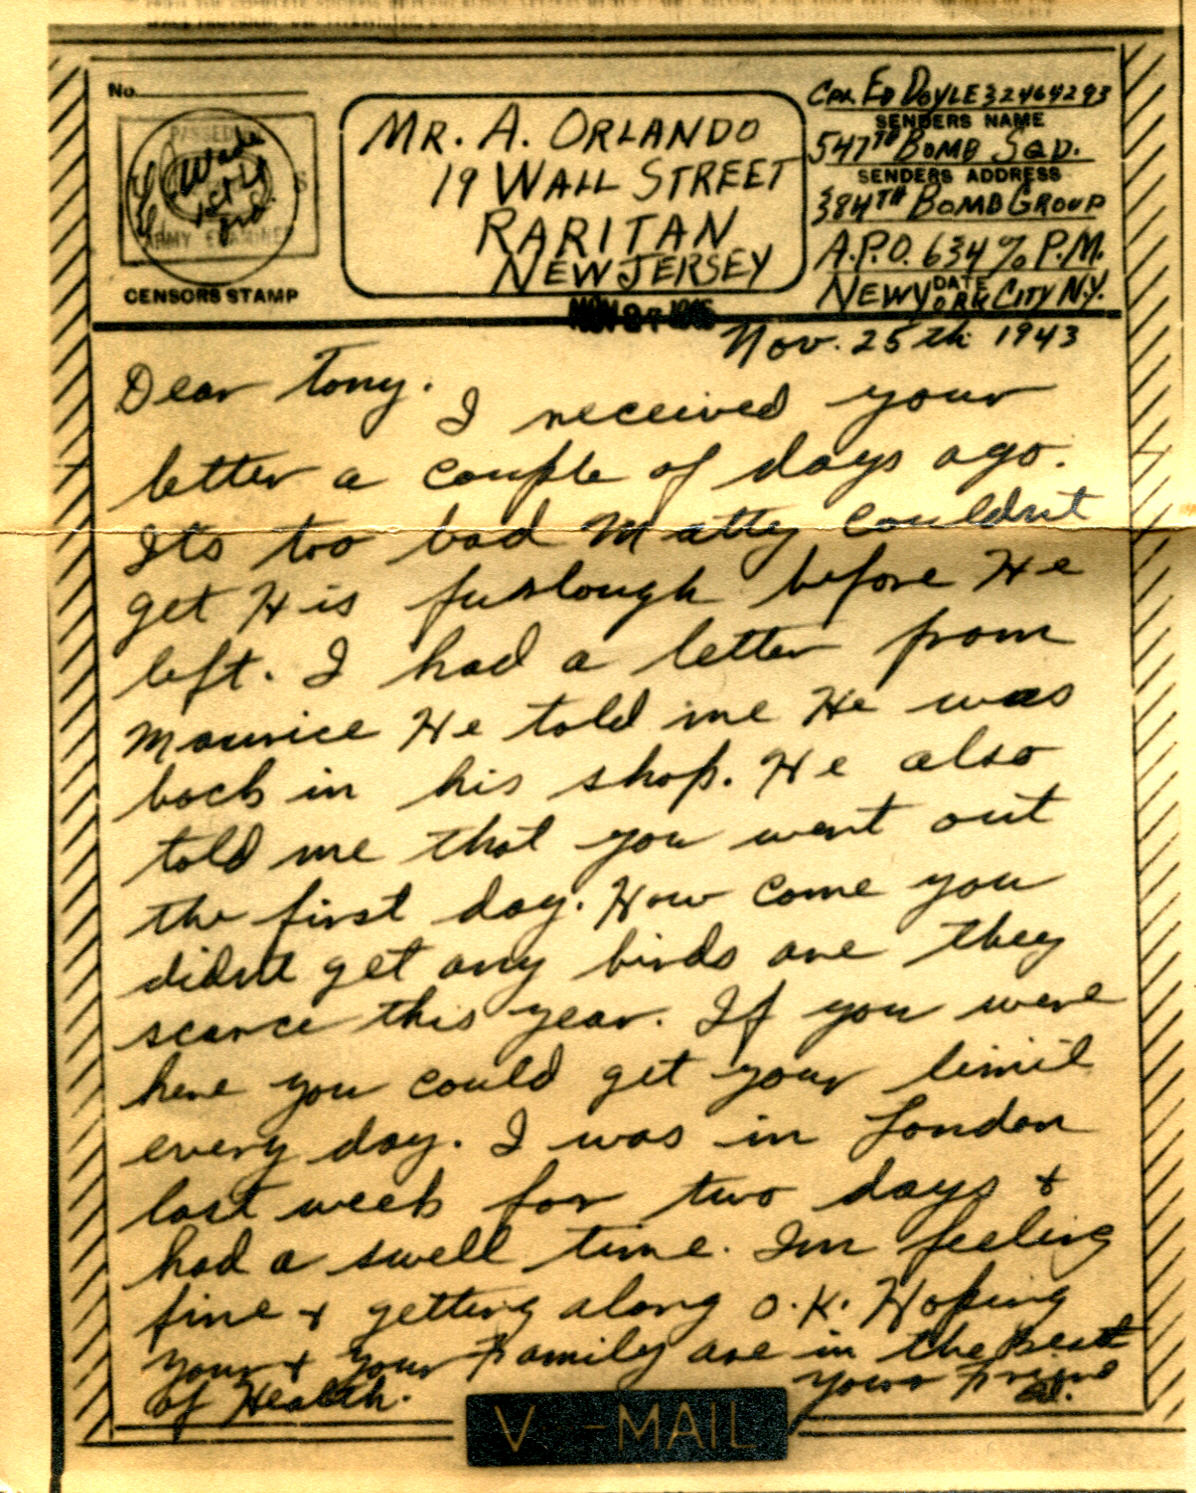 No.
PASSED
ARMY EXAMINER
CENSORS STAMP
MR. A. ORLANDO
19 WALL STREET
RARITAN
NEW JERSEY
CPL. ED DOYLE 32464293
SENDERS NAME
547TH BOMB SQD.
SENDERS ADDRESS
384TH BOMB GROUP
A.P.O. 634 % P.M.
DATE
NEW YORK CITY N.Y.
Nov. 25th 1943
Dear Tony.
I received your
letter a couple of days ago.
Its too bad Matty couldn't
get His furlough before He
left. I had a letter from
Maurice He told me He was
back in his shop. He also
told me that you went out
the first day. How come you
didnt get any birds are they
scarce this year. If you were
here you could get your limit
every day. I was in London
last week for two days &
had a swell time. Im feeling
fine & getting along O.K. Hoping
your & your Family are in the Best
of Health.
yours Friend
Ed.
V-MAIL